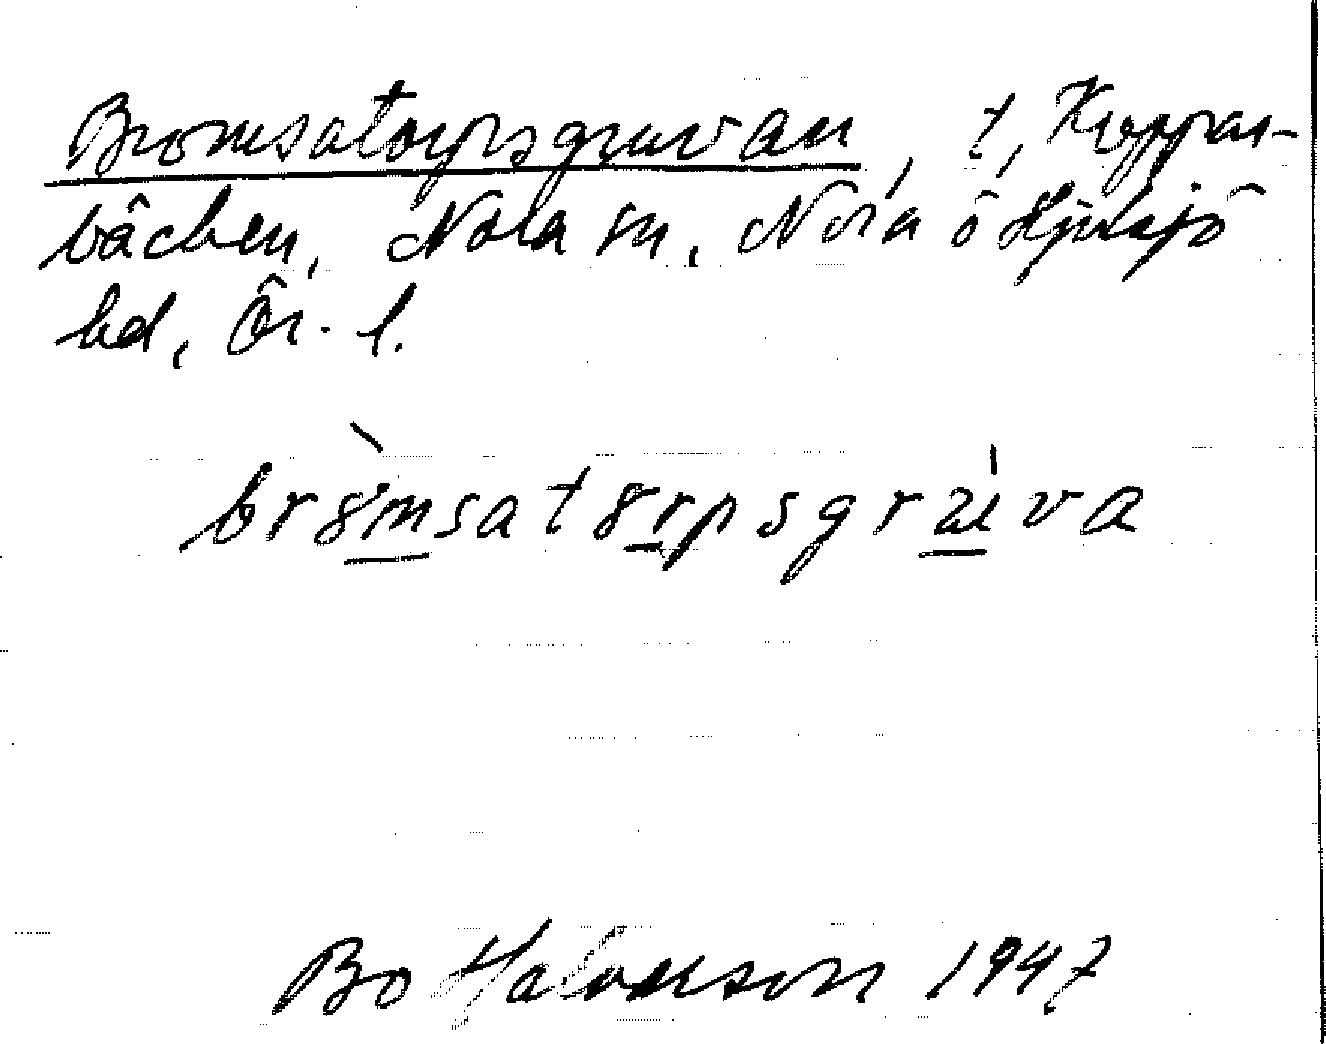 Bromsatorpsgruvan, t, Knappar-
bäcken, Nora sn, Nora o Hjulsjö
hd, Ör. l.
br8msat8rpsgruva
Bo Halvarson 1947